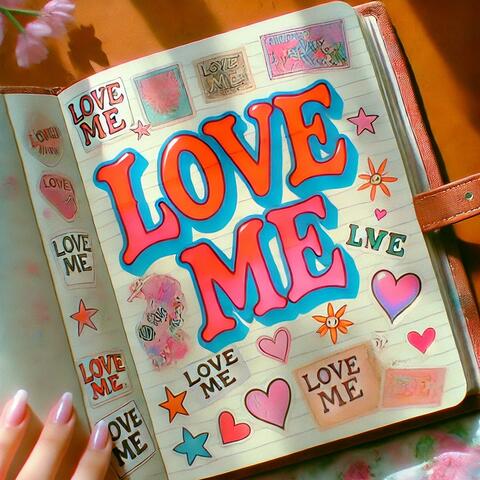 LOVE
ME
LOVE
ME
LOVE
ME
LOVE
LOVE
ME
LVE
LOVE
ME
LOVE
ME
LOVE
ME
OVE
ME